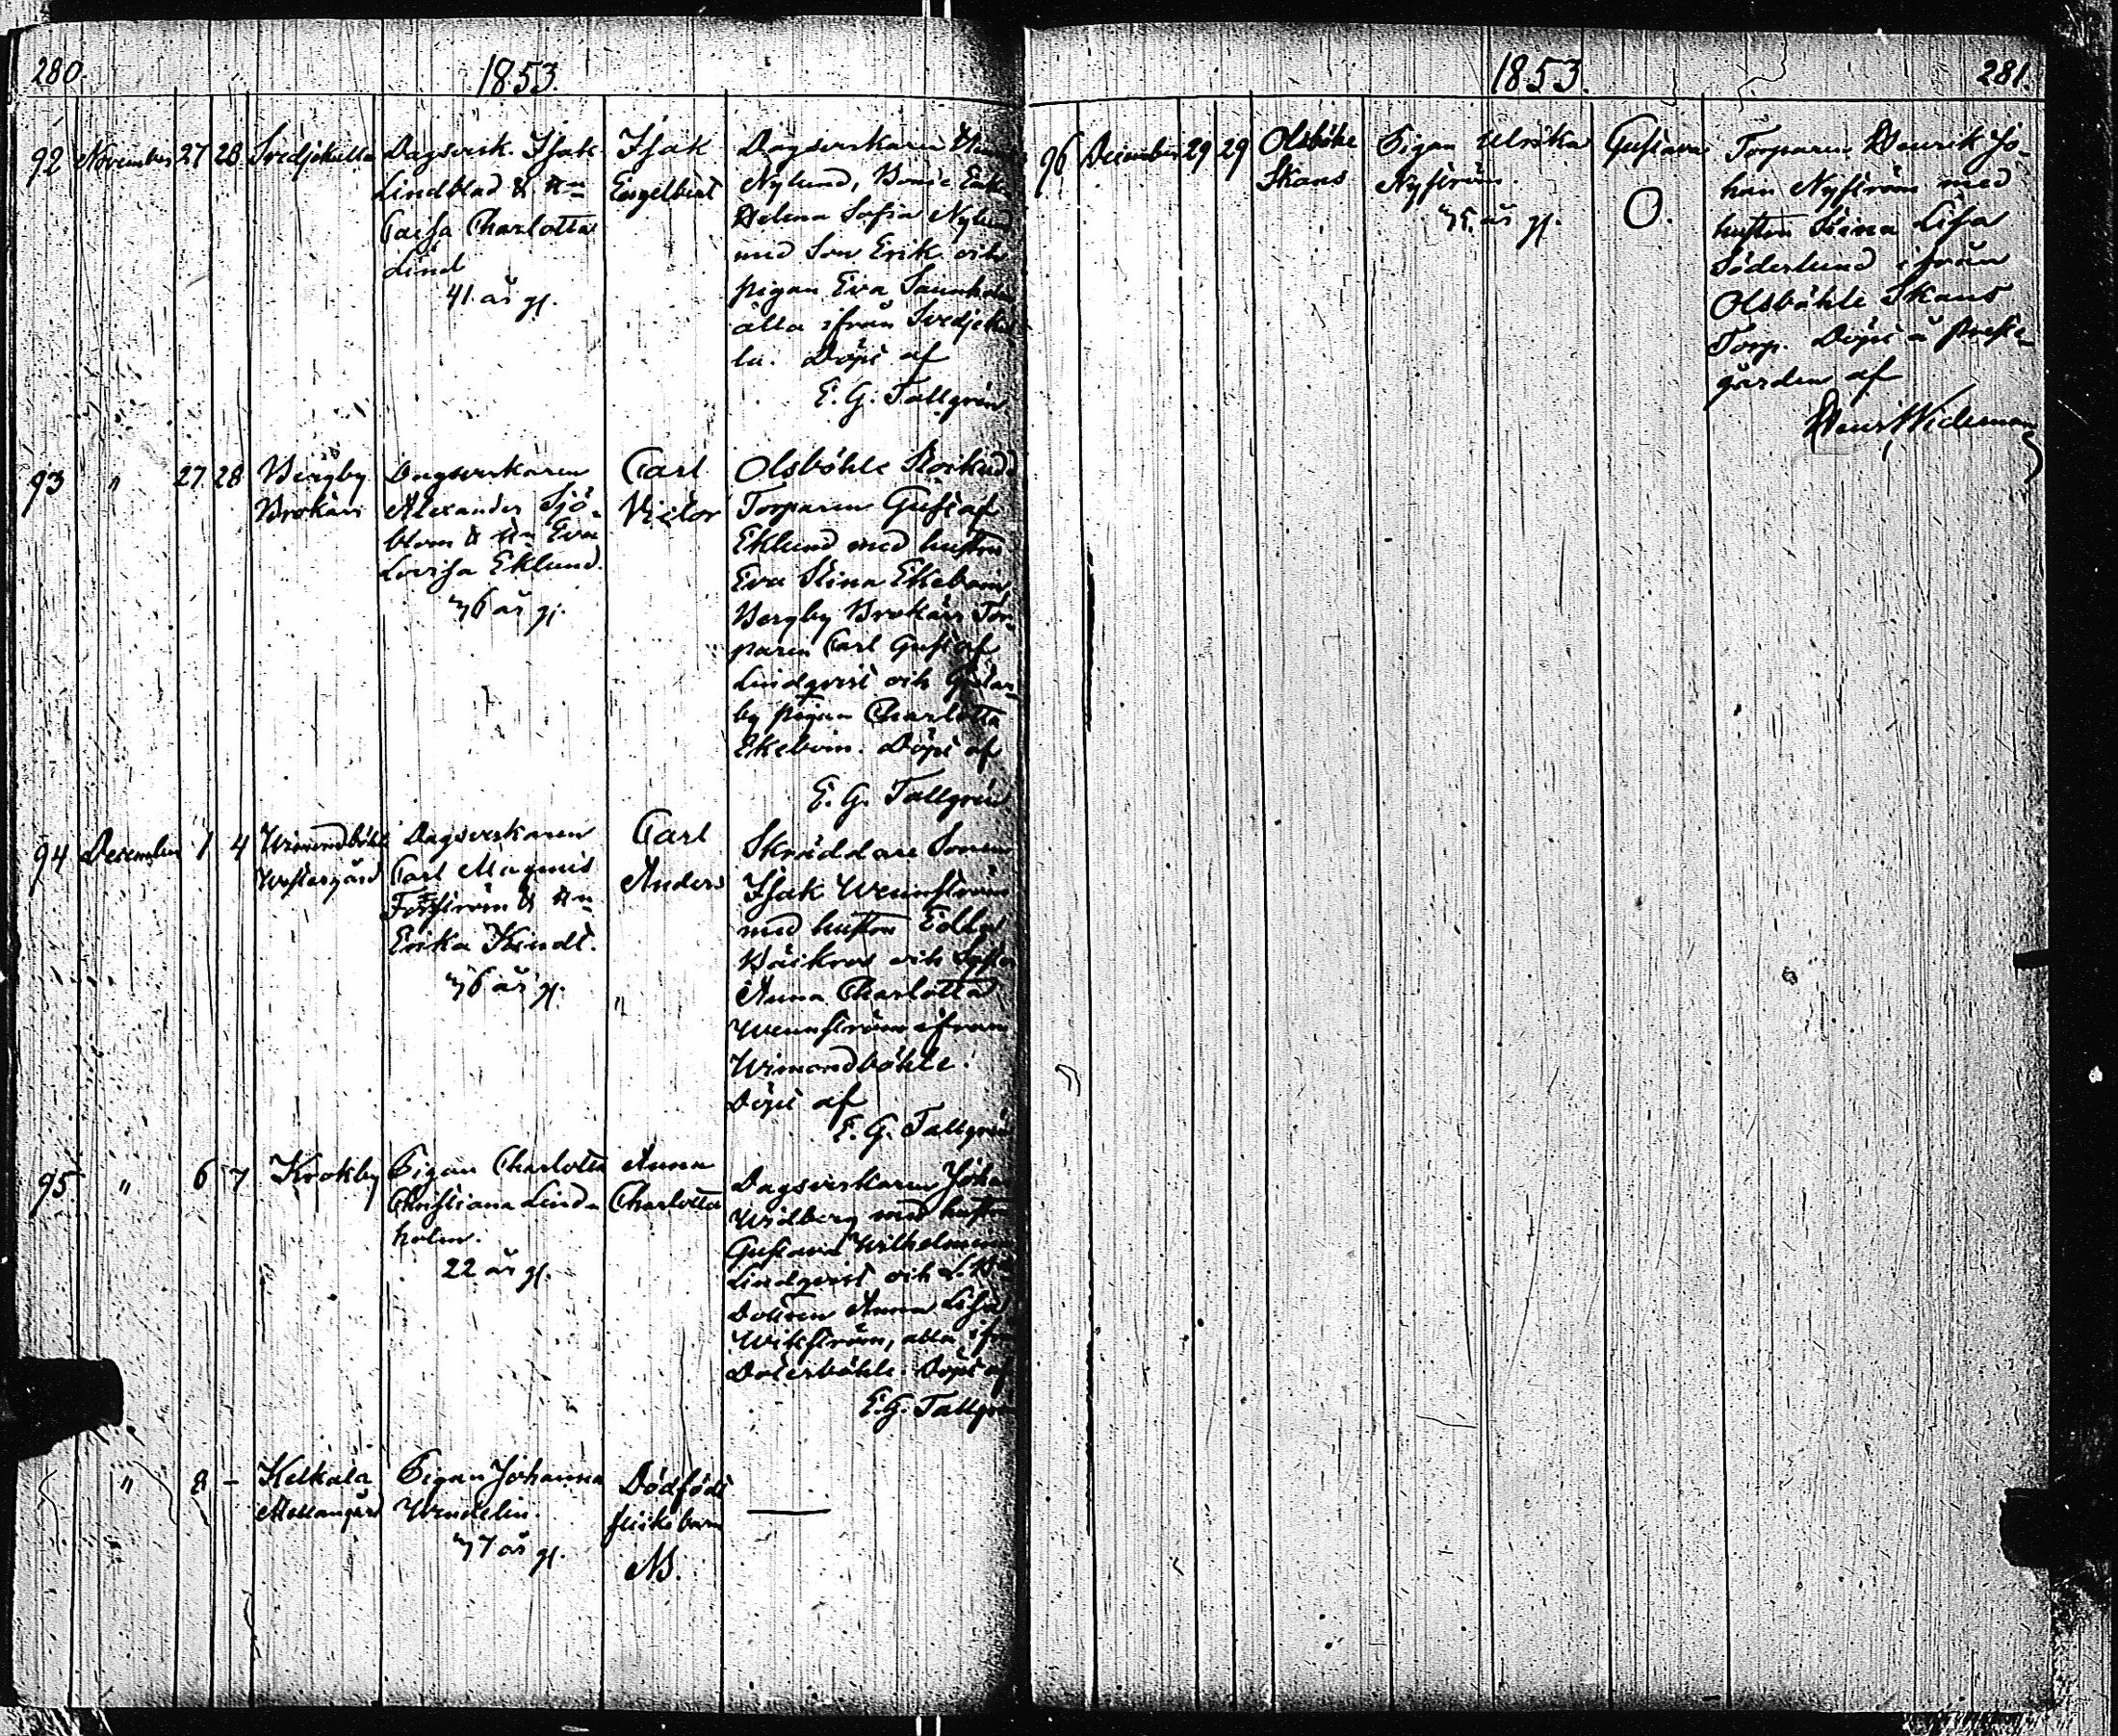 280.
1853.
92 November 27 28 Svedjekulla Dagsverk. Isak Isak Dagsverkaren
Lindblad & Hu Engelbert Nylund, Bonde Enk
Caisa Charlotta Helena Sofia Nylund
Lind med Son Erik och
41. år gl. pigan Eva Sannholm
alla ifrån Svedjekul
la. Döpt af
E. G. Tallgrén
93 " 27 28 Bergby Dagsverkaren Carl Olsböhle
Brokärr Alexander Sjö- Victor Torparen Gustaf
blom & Hu Eva Eklund med hustru
Lovisa Eklund. Eva Stina Ekebom,
36 år gl. Bergby Brokärr Tor-
paren Carl Gustaf
Lindqvist och
by pigan Charlotta
Ekebom. Döpt af
E. G. Tallgrén
94 December 1 4 Wimondböhle Dagsverkaren Carl Skräddare Sonen
Westergård Carl Magnus Anders Isak Wennström
Forsström & Hu med hustru Edla
Erika Kindt. och Syster
36 år gl. " Anna Charlotta
Wennström ifrån
Wimondböhle.
Döpt af
E. G. Tallgrén
95. " 6 7 Krokby Pigan Charlotta Anna Dagsverkaren Johan
Christiana Lind- Charlotta Widberg med hustru
holm. Gustava Wilhelmina
22 år gl. Lindqvist och
Dottren Anna Lisa
Wikström, alla ifr
Dalersböhle. Döpt af
E. G. Tallgrén
" 8 - Kelkala Pigan Johanna Dödfödt —
Mellangård Wendelin. flickebarn
37 år gl. NB.
1853.
281.
96 December 29 29 Olsböhle Pigan Ulrika Gustava Torparen Henrik Jo-
Skans Nyström. O. han Nyström med
35. år gl. hustru Stina Lisa
Söderlund ifrån
Olsböhle Skans
Torp. Döpt å Preste-
gården af
Henr. Wideman